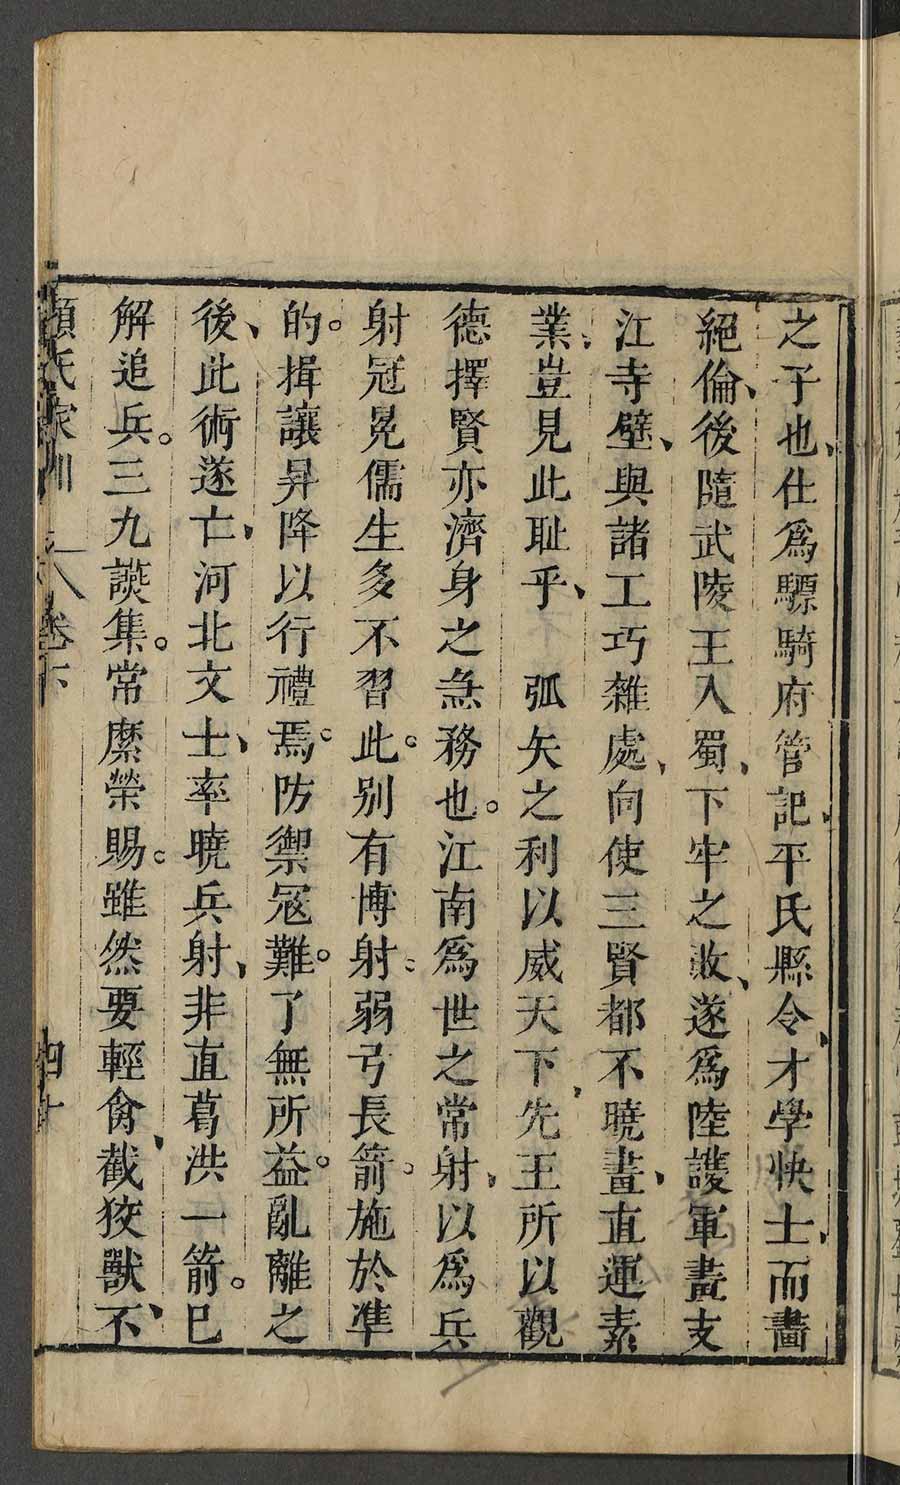 之子也、仕爲驃騎府管記、平氏縣令、才學快士、而畵
絕倫、後隨武陵王入蜀、下牢之敗、遂爲陸護軍畫支
江寺壁、與諸工巧雜處、向使三賢都不曉畫、直運素
業、豈見此耻乎、　弧矢之利以威天下、先王所以觀
德擇賢亦濟身之急務也。江南爲世之常射、以爲兵
射冠冕儒生多不習此。别有博射。弱弓長箭。施於凖
的。揖讓昇降以行禮焉。防禦寇難。了無所益。亂離之
後、此術遂亡、河北文士、率曉兵射、非直葛洪一箭。已
解追兵。三九讌集。常縻榮賜。雖然要輕禽、截狡獸不、
顏氏家訓　卷下　四十